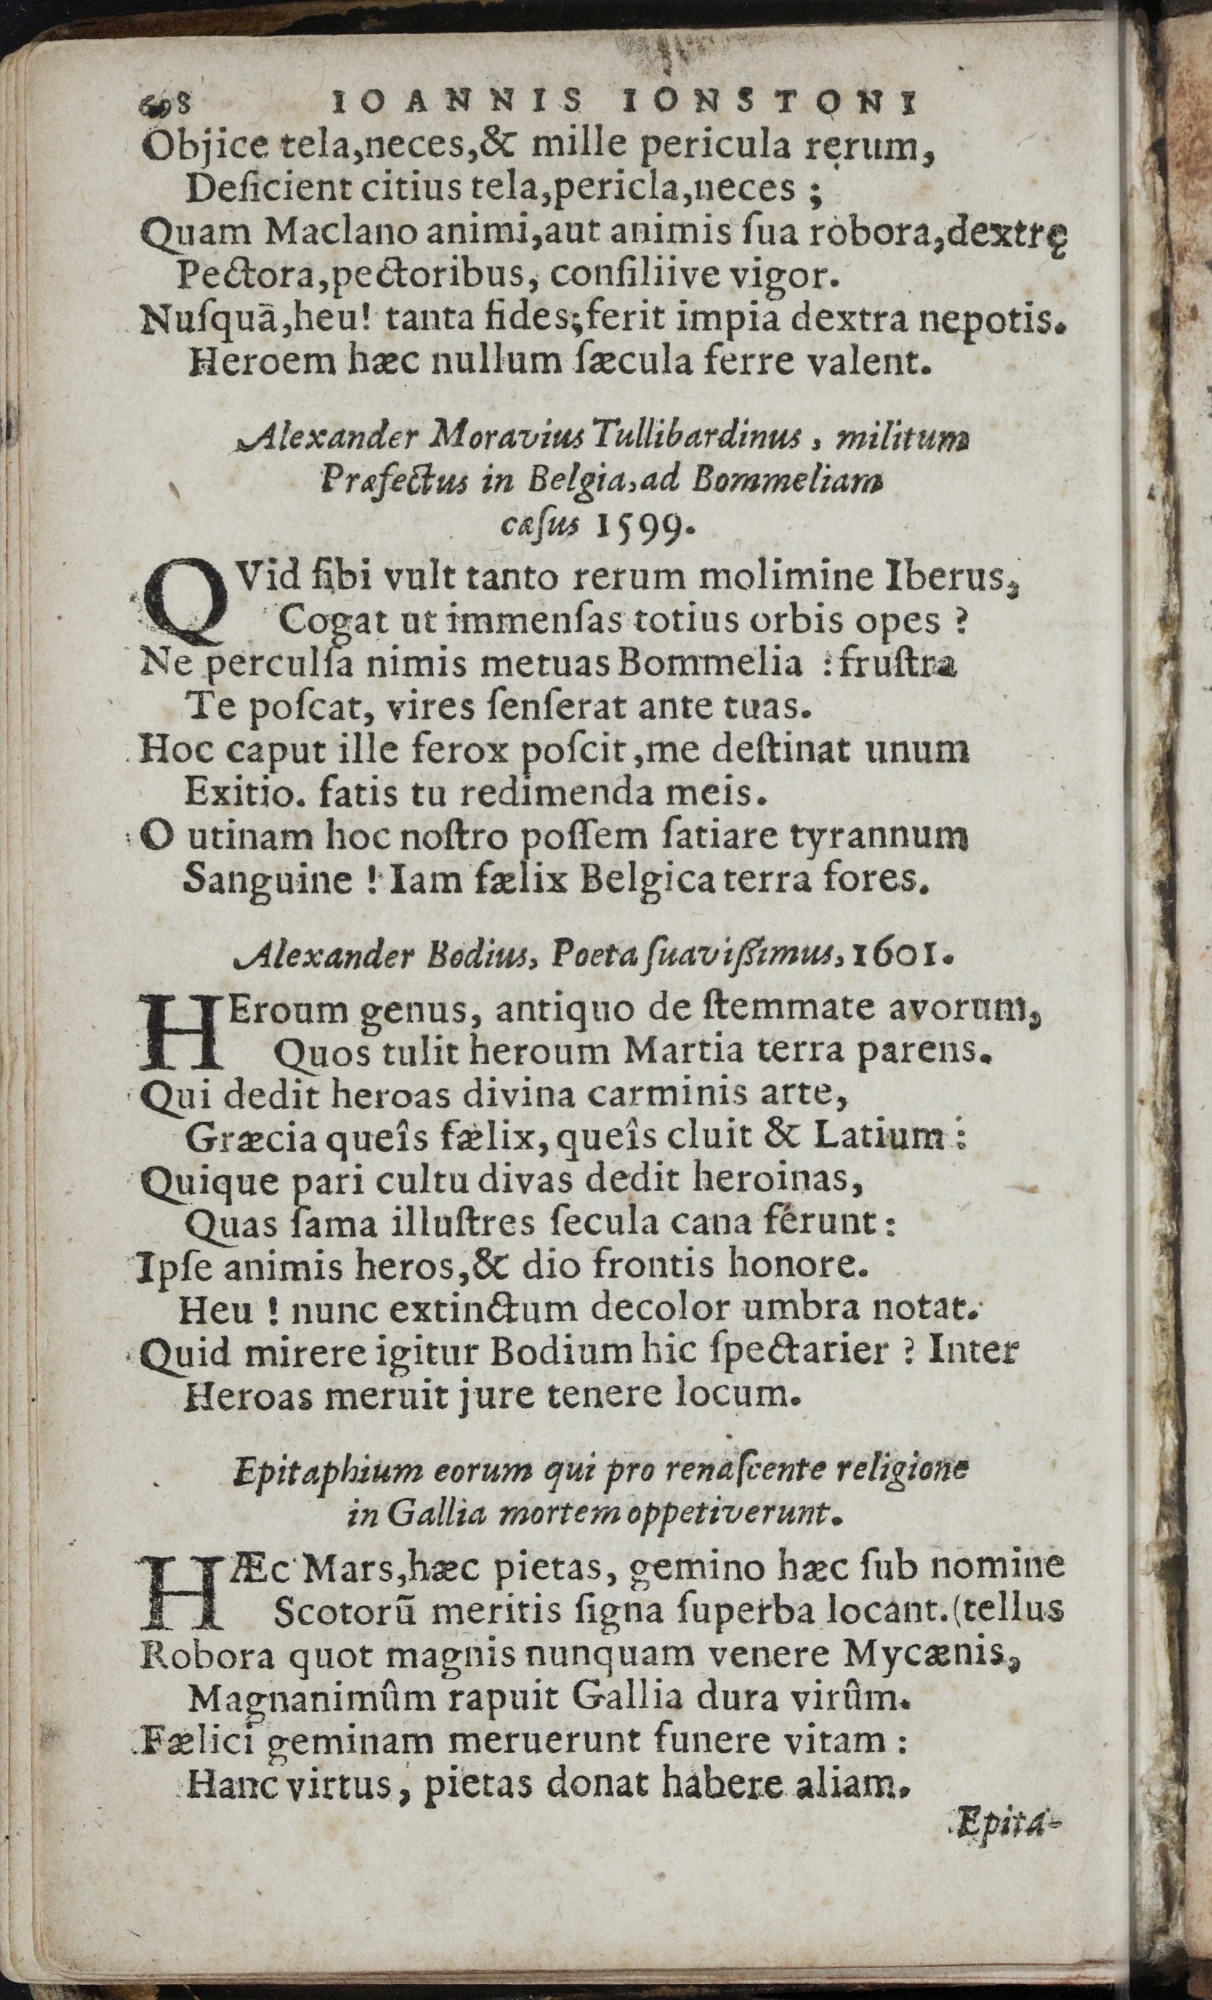 698 IOANNIS IONSTONI
Objice tela,neces,& mille pericula rerum,
Deficient citius tela,pericla,neces ;
Quam Maclano animi,aut animis ſua robora,dextrę
Pectora,pectoribus, conſiliive vigor.
Nuſquā,heu! tanta fides;ferit impia dextra nepotis.
Heroem hæc nullum ſæcula ferre valent.
Alexander Moravius Tullibardinus , militum
Præfectus in Belgia,ad Bommeliam
cæſus 1599.
QVid ſibi vult tanto rerum molimine Iberus,
Cogat ut immenſas totius orbis opes ?
Ne perculſa nimis metuas Bommelia : fruſtra
Te poſcat, vires ſenſerat ante tuas.
Hoc caput ille ferox poſcit ,me deſtinat unum
Exitio. fatis tu redimenda meis.
O utinam hoc noſtro poſſem ſatiare tyrannum
Sanguine ! Iam fælix Belgica terra fores.
Alexander Bodius, Poeta ſuavißimus, 1601.
HEroum genus, antiquo de ſtemmate avorum,
Quos tulit heroum Martia terra parens.
Qui dedit heroas divina carminis arte,
Græcia queîs fælix, queîs cluit & Latium :
Quique pari cultu divas dedit heroinas,
Quas fama illuſtres ſecula cana ferunt :
Ipſe animis heros,& dio frontis honore.
Heu ! nunc extinctum decolor umbra notat.
Quid mirere igitur Bodium hic ſpectarier ? Inter
Heroas meruit jure tenere locum.
Epitaphium eorum qui pro renaſcente religione
in Gallia mortem oppetiverunt.
HÆc Mars,hæc pietas, gemino hæc ſub nomine
Scotorū meritis ſigna ſuperba locant.(tellus
Robora quot magnis nunquam venere Mycænis,
Magnanimûm rapuit Gallia dura virûm.
Fælici geminam meruerunt funere vitam :
Hanc virtus, pietas donat habere aliam.
Epita-